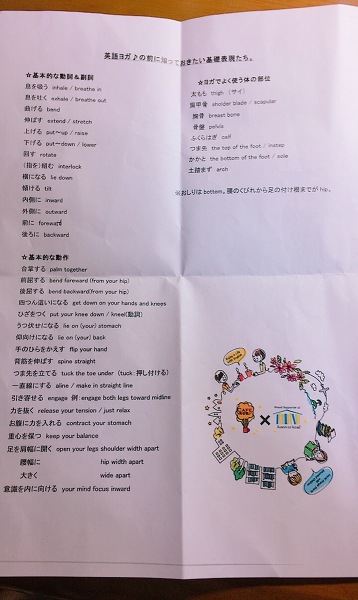 英語ヨガ♪の前に知っておきたい基礎表現たち。
☆基本的な動詞&副詞
息を吸う inhale / breathe in
息を吐く exhale / breathe out
曲げる bend
伸ばす extend / stretch
上げる put～up / raise
下げる put～down / lower
回す rotate
(指を)組む interlock
横になる lie down
傾ける tilt
内側に inward
外側に outward
前に foreward
後ろに backward
☆基本的な動作
合掌する palm together
前屈する bend foreward(from your hip)
後屈する bend backward(from your hip)
四つん這いになる get down on your hands and knees
ひざをつく put your knee down / kneel(動詞)
うつ伏せになる lie on (your) stomach
仰向けになる lie on (your) back
手のひらをかえす flip your hand
背筋を伸ばす spine straight
つま先を立てる tuck the toe under (tuck:押し付ける)
一直線にする aline / make in straight line
引き寄せる engage 例:engage both legs toward midline
力を抜く release your tension / just relax
お腹に力を入れる contract your stomach
重心を保つ keep your balance
足を肩幅に開く open your legs shoulder width apart
腰幅に hip width apart
大きく wide apart
意識を内に向ける your mind focus inward
☆ヨガでよく使う体の部位
太もも thigh (サイ)
肩甲骨 sholder blade / scapular
胸骨 breast bone
骨盤 pelvis
ふくらはぎ calf
つま先 the top of the foot / instep
かかと the bottom of the foot / sole
土踏まず arch
※おしりはbottom。腰のくびれから足の付け根までがhip。
×